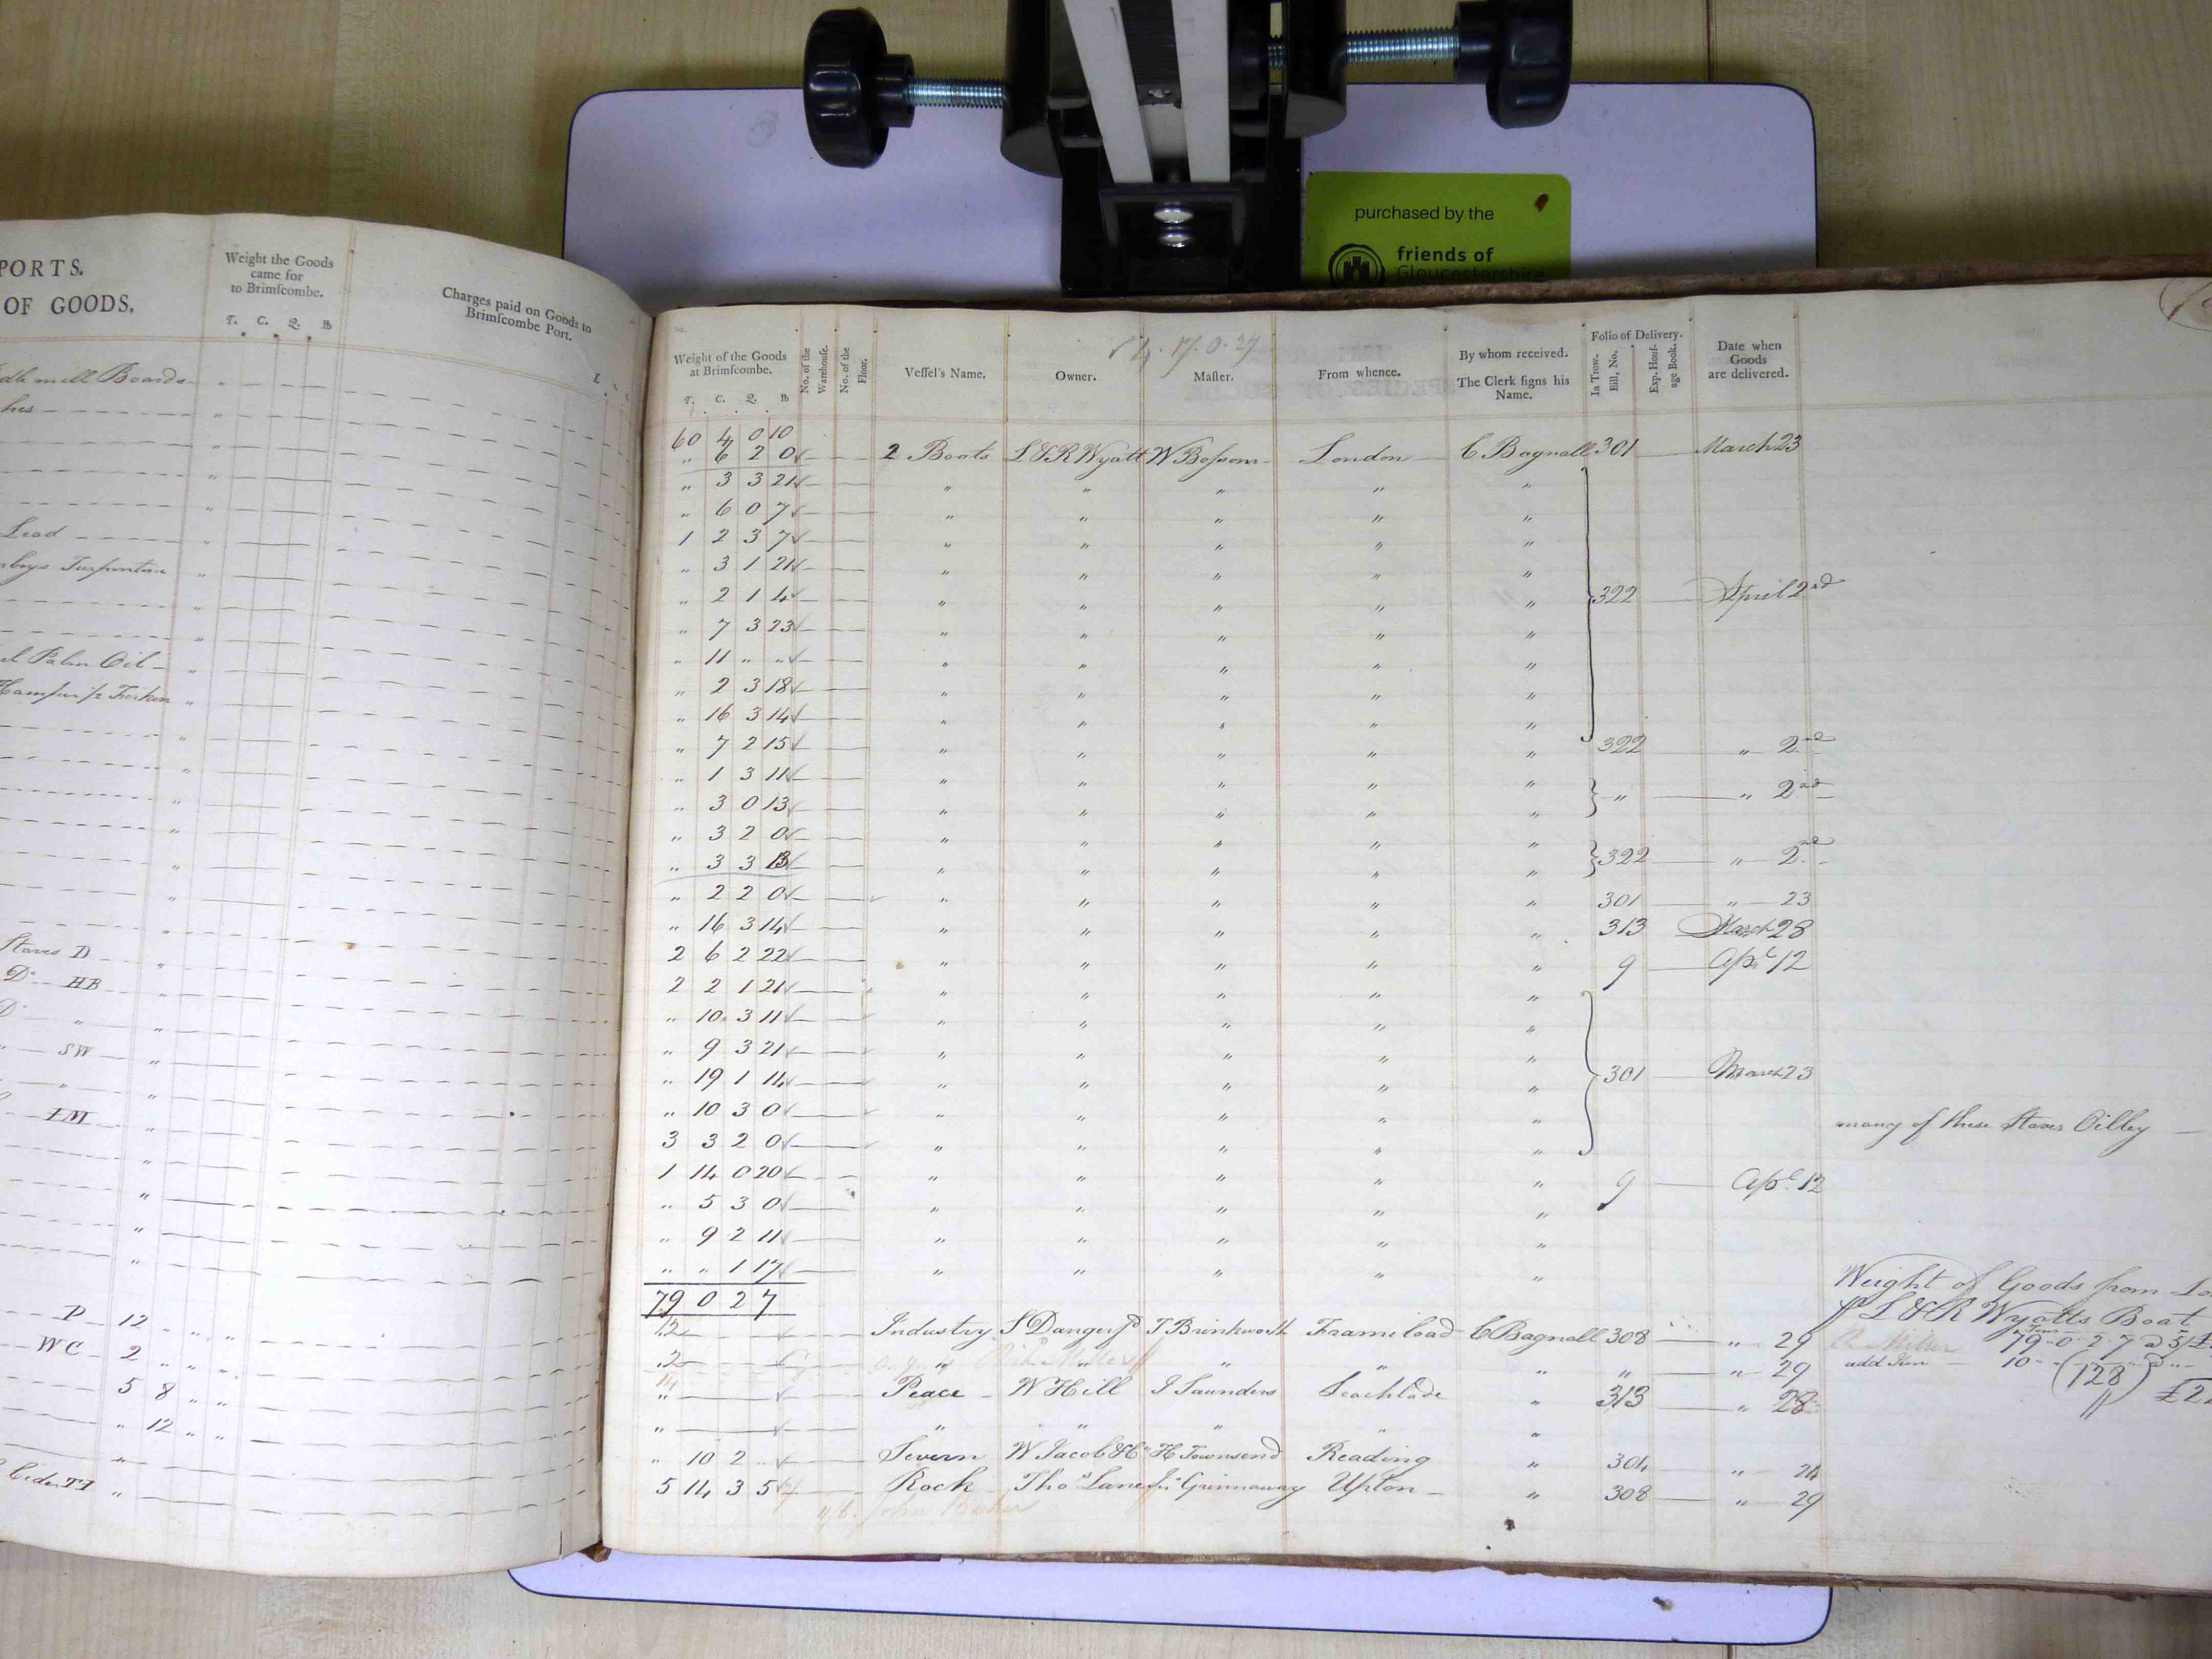 purchased by the
friends of
Gloucestershire
PORTS.
OF GOODS.
Weight the Goods
came for
to Brimſcombe.
T. C. Q. lb
Charges paid on Goods to
Brimſcombe Port.
£
mill Boards
Lead
Turpentine
Palm Oil
Staves D
Do HB
Do "
" SW
IM
P 12 " " "
WC 2 " " "
5 8 " "
" 12 " "
Cider TI "
Weight of the Goods
at Brimſcombe.
T. C. Q. lb
No. of the
Warehouſe.
No. of the
Floor.
Veſſel's Name.
Owner.
Maſter.
From whence.
By whom received.
The Clerk ſigns his
Name.
Folio of Delivery.
In Trow-
Bill, No.
Exp. Houſ-
age Book.
Date when
Goods
are delivered.
60 4 0 10
" 6 2 0 2 Boats L & R Wyatt W Boſsom London C Bagnall 301 March 23
" 3 3 21 " " " " "
" 6 0 7 " " " " "
1 2 3 7 " " " " "
" 3 1 21 " " " " "
" 2 1 4 " " " " " 322 April 2nd
" 7 3 23 " " " " "
" 11 " " " " " " "
" 2 3 18 " " " " "
" 16 3 14 " " " " "
" 7 2 15 " " " " " 322 " 2nd
" 1 3 11 " " " " "
" 3 0 13 " " " " " " " 2nd
" 3 2 0 " " " " "
" 3 3 13 " " " " " 322 " 2nd
" 2 2 0 " " " " " 301 " 23
" 16 3 14 " " " " " 313 March 28
2 6 2 22 " " " " " 9 Apl 12
2 2 1 21 " " " " "
" 10 3 11 " " " " "
" 9 3 21 " " " " "
" 19 1 14 " " " " " 301 March 23
" 10 3 0 " " " " "
3 3 2 0 " " " " " many of these Staves Oilley
1 14 0 20 " " " " " 9 Apl 12
" 5 3 0 " " " " "
" 9 2 11 " " " " "
" " 1 17 " " " " "
79 0 2 7
Weight of Goods from
L & R Wyatts Boat
79 0 2 7
add
10
(128)
12 Industry S Dangerfd T Brinkworth Frameload C Bagnall 308 " 29
2 " " " " " " " 29
" Peace W Hill J Saunders Leachlade " 313 " 28
" " " " " "
" 10 2 " Severn W Jacob & Co H Townsend Reading " 304 " 24
5 14 3 5 Rock Thos Lane Jn Grinnaway Upton " 308 " 29
John Baker